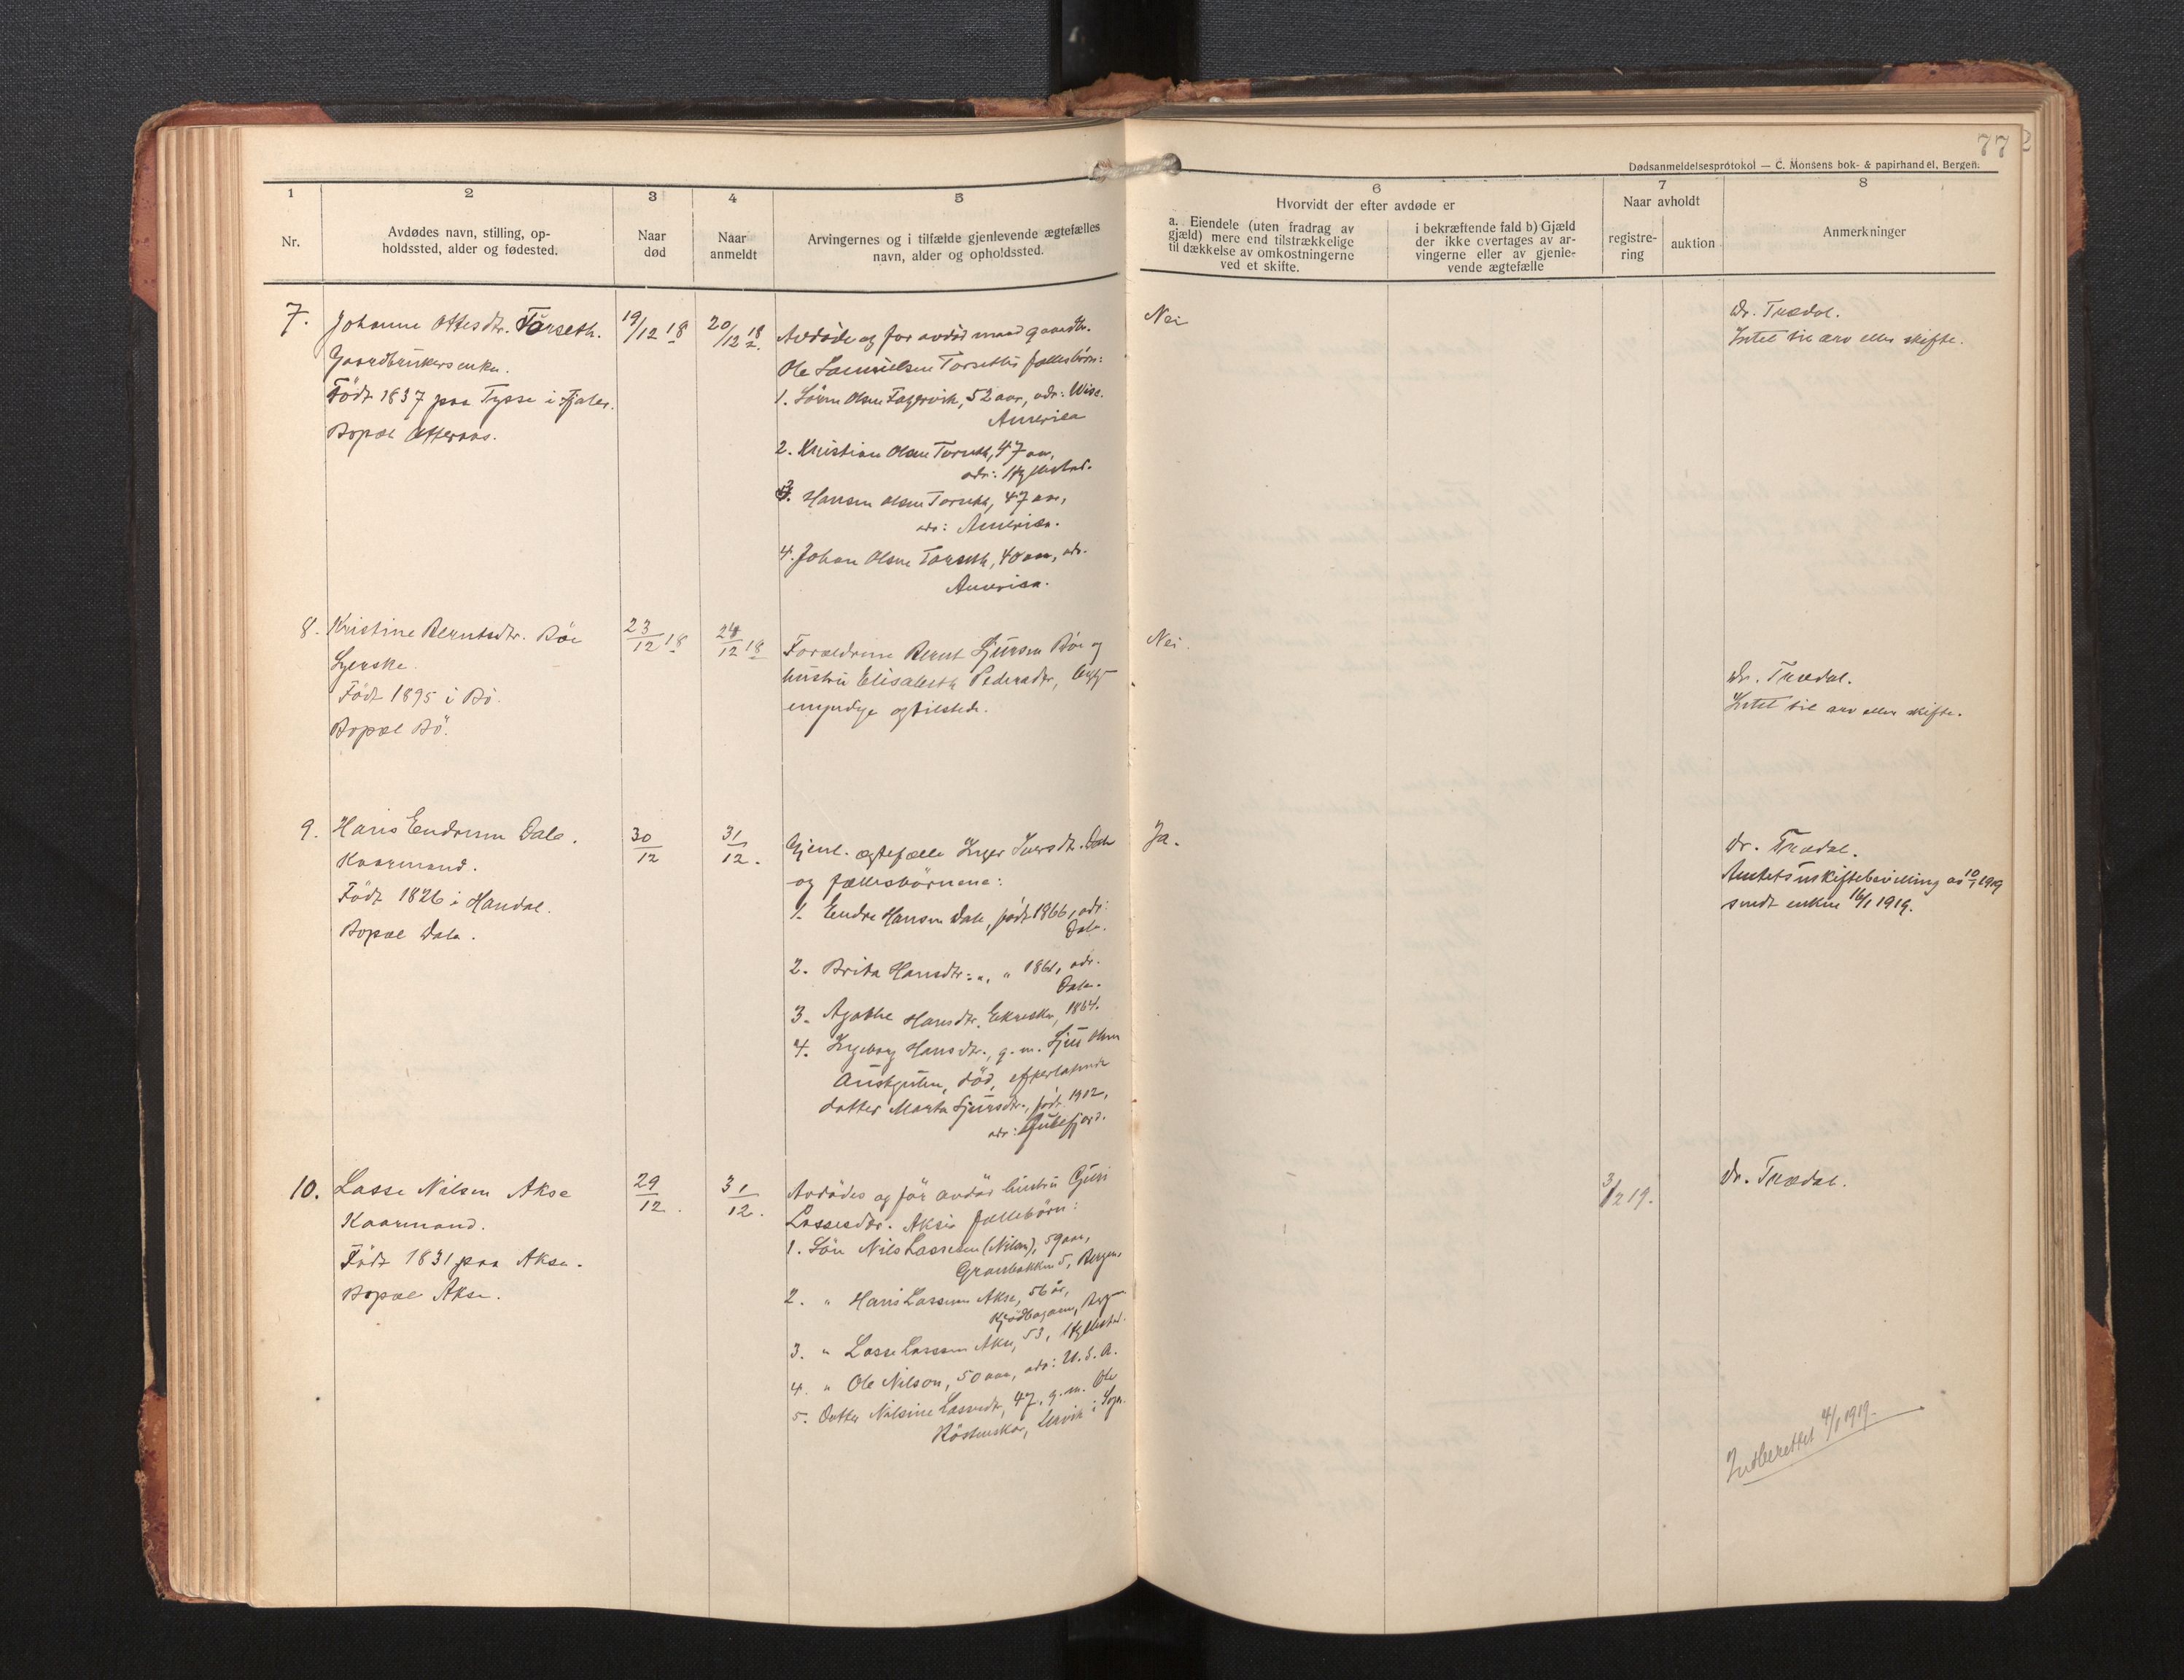 77
Dødsanmeldelsesprotokol — C. Monsens bok- & papirhandel, Bergen.
1 2 3 4 5 6 7 8
Nr.
Avdødes navn, stilling, op-
holdssted, alder og fødested.
Naar
død
Naar
anmeldt
Arvingernes og i tilfælde gjenlevende ægtefælles
navn, alder og opholdssted.
Hvorvidt der efter avdøde er
a. Eiendele (uten fradrag av
gjæld) mere end tilstrækkelige
til dækkelse av omkostningerne
ved et skifte.
i bekræftende fald b) Gjæld
der ikke overtages av ar-
vingerne eller av gjenle-
vende ægtefælle
Naar avholdt
registre-
ring
auktion
Anmerkninger
7.
Johanne Ottesdtr. Torseth.
Gaardbrukersenke.
Född 1837 paa Tysse i Fjaler.
Bopæl Otteraas.
19/12 18
20/12 18
Avdøde og før avdød mand gaardbr.
Ole Samuelsen Torseths fællesbørn:
1. Sørn Olsen Fagervik, 52 aar, adr: Wisc.
America
2. Kristian Olsen Torseth, 47 aar,
adr: Hyllestad.
3. Hansen Olsen Torseth, 47 aar,
adr: America.
4. Johan Olsen Torseth, 40 aar, adr.
America.
Nei
Dr. Trædal.
Intet til arv eller skifte.
8.
Kristine Berntsdtr. Bøe
Syerske.
Född 1895 i Bö.
Bopæl Bö.
23/12 18
24/12 18
Forældrene Bernt Sjursen Böe og
hustru Elisabeth Pedersdtr,
myndige og tilstede.
Nei.
Dr. Trædal.
Intet til arv eller skifte.
9.
Hans Endresen Dale.
Kaarmand.
Född 1826 i Mandal.
Bopæl Dale.
30/12
31/12.
Gjenl. ægtefælle Inger Iversdtr. Dale
og fællesbörnene:
1. Endre Hansen Dale, födt 1866, adr:
Dale.
2. Brita Hansdtr: „ „ 1861, adr.
Dale.
3. Agathe Hansdtr. Ekreske, 1864.
4. Ingeborg Hansdtr., g.m. Sjur Olsen
Austgulen, död, efterlatende
datter Marta Sjursdtr., födt 1902,
adr: Gulefjord.
Ja.
Dr. Trædal.
Amtets uskiftebevilling av 10/1 1919
sendt enken 16/1 1919.
10.
Lasse Nilsen Akse
Kaarmand.
Född 1831 paa Akse.
Bopæl Akse.
29/12.
31/12.
Avdødes og før avdöd hustru Guri
Lassesdtr. Akses fællebörn:
1. Sön Nils Lassesen (Nilsen), 59 aar,
5, Bergen
2. " Hans Lassesen Akse, 56 år,
Bergen.
3. " Lasse Lassesen Akse, 53, Hyllestad.
4. " Ole Nilson, 50 aar, adr: U. S. A.
5. Datter Nilsine Lassesdtr, 47, g.m. Ole
Lervik i Sogn.
3/2 19.
Dr. Trædal.
Indberettet 4/1 1919.